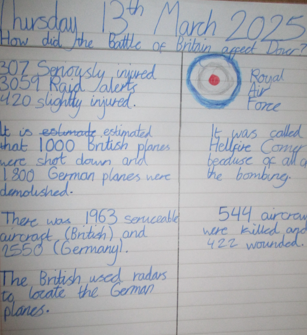 Thursday 13th March 2025
How did the Battle of Britain affect Dover?
307 Seriously injured
3059 Raid alerts
420 slightly injured.
Royal
Air
Force
It is estimate estimated
that 1000 British planes
were shot down and
1800 German planes were
demolished.
It was called
Hellfire Corner
because of all of
the bombing.
There was 1963 serviceable
aircraft (British) and
2550 (Germany).
544 aircrew
were killed and
422 wounded.
The British used radars
to locate the German
planes.